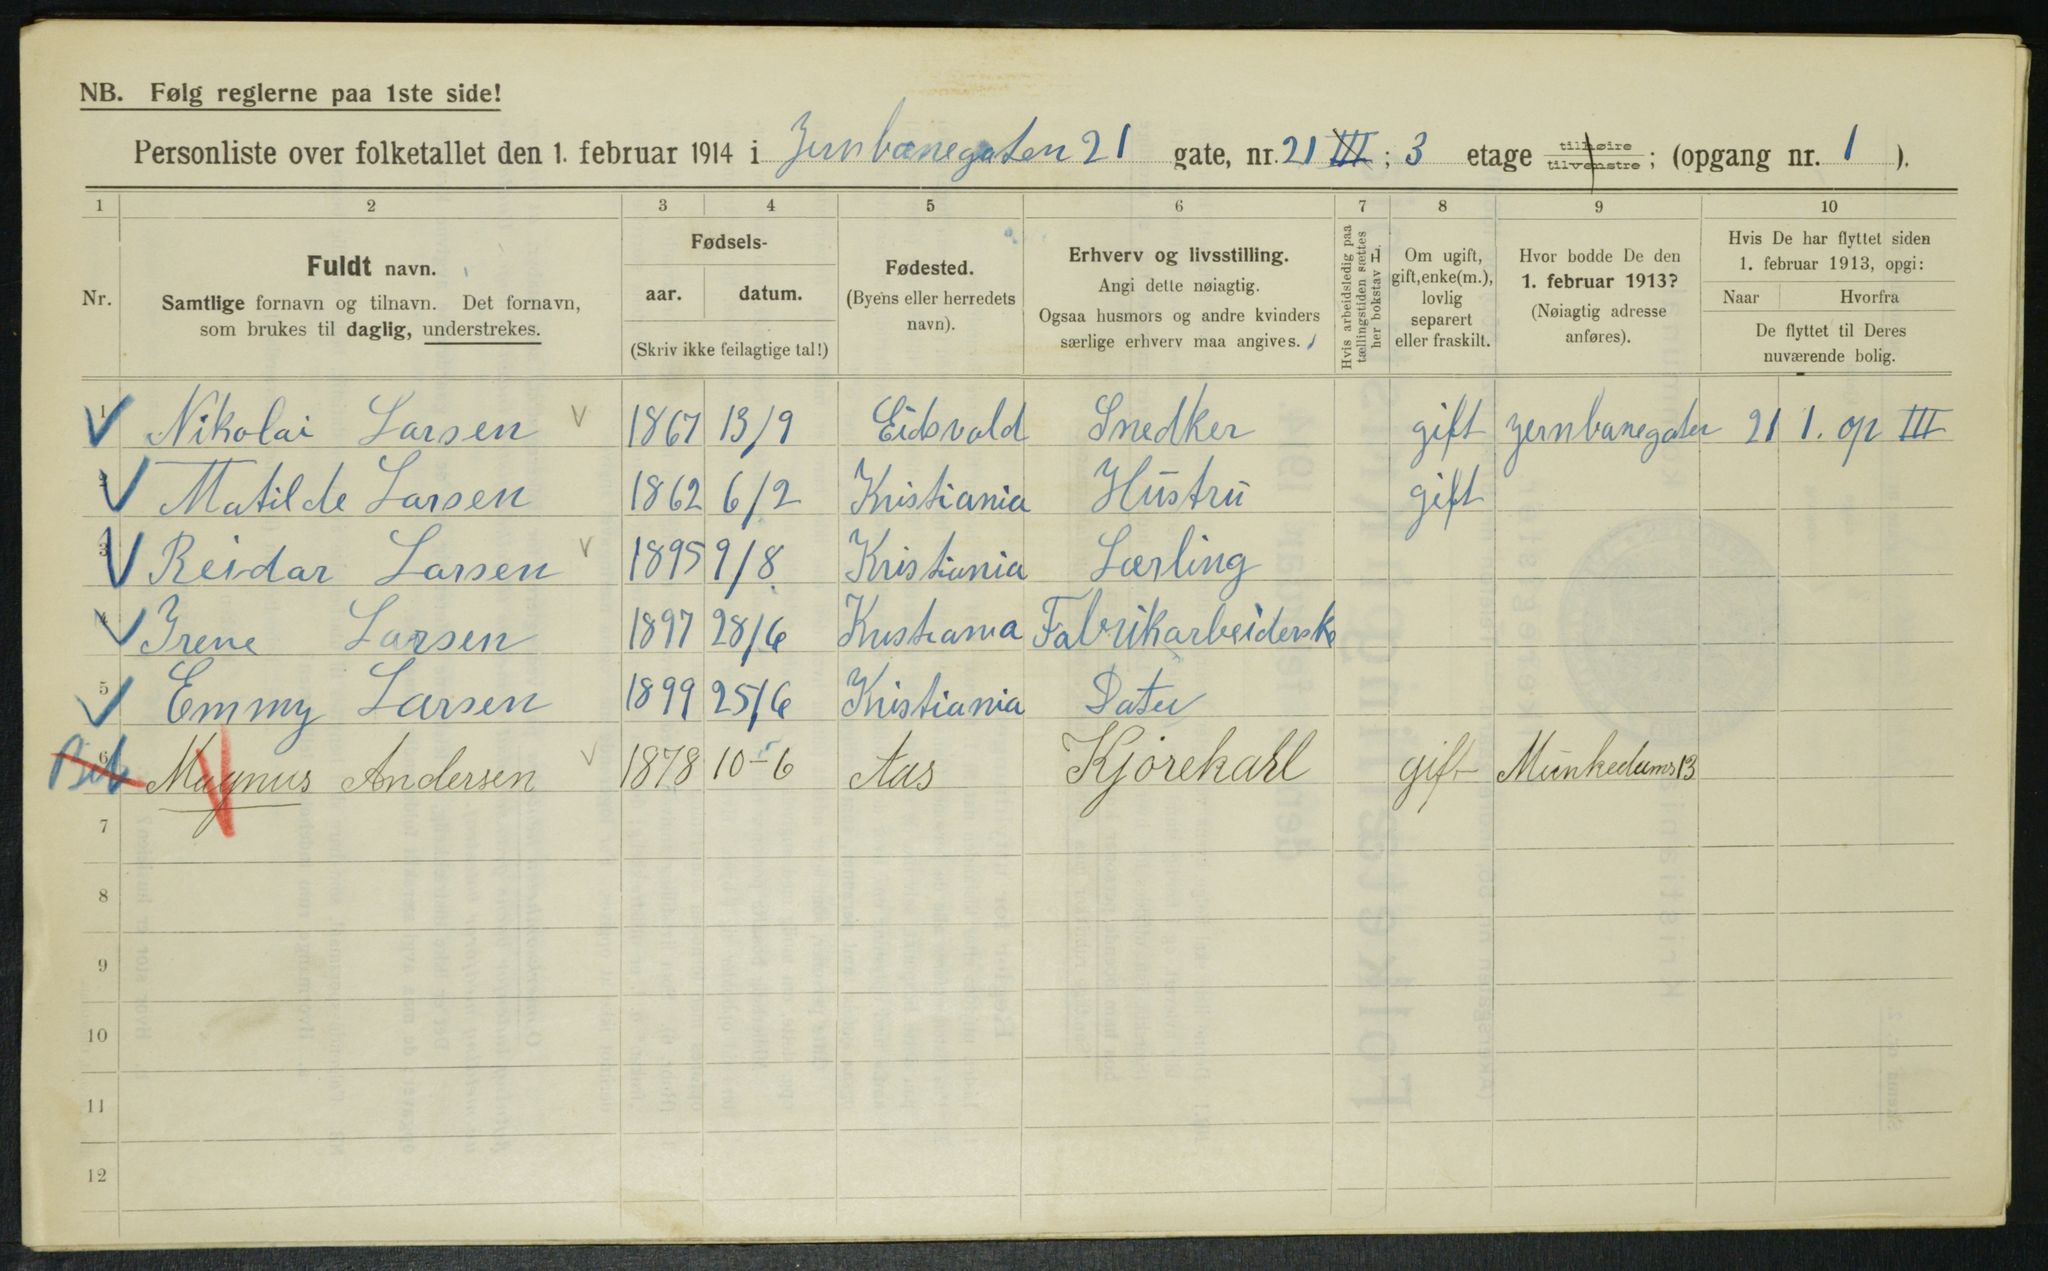 NB. Følg reglerne paa 1ste side!
Personliste over folketallet den 1. februar 1914 i Jernbanegaten 21 gate, nr. 21 III; 3 etage tilhøire tilvenstre; (opgang nr. 1 ).
1 2 3 4 5 6 7 8 9 10
Nr.
Fuldt navn.
Samtlige fornavn og tilnavn. Det fornavn,
som brukes til daglig, understrekes.
Fødsels-
aar. datum.
(Skriv ikke feilagtige tal!)
Fødested.
(Byens eller herredets
navn).
Erhverv og livsstilling.
Angi dette nøiagtig.
Ogsaa husmors og andre kvinders
særlige erhverv maa angives.
Hvis arbeidsledig paa
tællingstiden sættes
her bokstav L.
Om ugift,
gift, enke(m.),
lovlig
separert
eller fraskilt.
Hvor bodde De den
1. februar 1913?
(Nøiagtig adresse
anføres).
Hvis De har flyttet siden
1. februar 1913, opgi:
Naar Hvorfra
De flyttet til Deres
nuværende bolig.
1 Nikolai Larsen 1867 13/9 Eidsvold Snedker gift Jernbanegaten 21 1. op III
2 Matilde Larsen 1862 6/2 Kristiania Hustru gift
3 Reidar Larsen 1895 9/8 Kristiania Lærling
4 Irene Larsen 1897 28/6 Kristiania Fabrikarbeiderske
5 Emmy Larsen 1899 25/6 Kristiania Dater
6 Magnus Andersen 1878 10-6 Aas Kjørekarl gift Munkedams 13
7
8
9
10
11
12